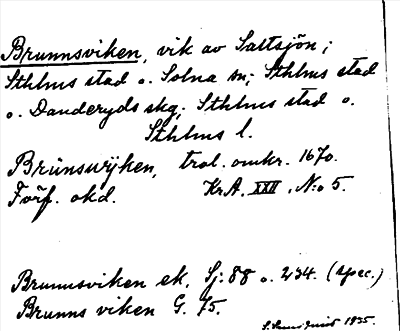 Brunnsviken, vik av Saltsjön;
Sthlms stad o. Solna sn; Sthlms stad
o. Danderyds skg; Sthlms stad o.
Sthlms l.
Brünswÿken, trol. omkr. 1670.
Förf. okd. KrA. XXII, N:o 5.
Brunnsviken ek. Sj: 88 o. 234. (spec.)
Brunns viken G. 75.
1935.